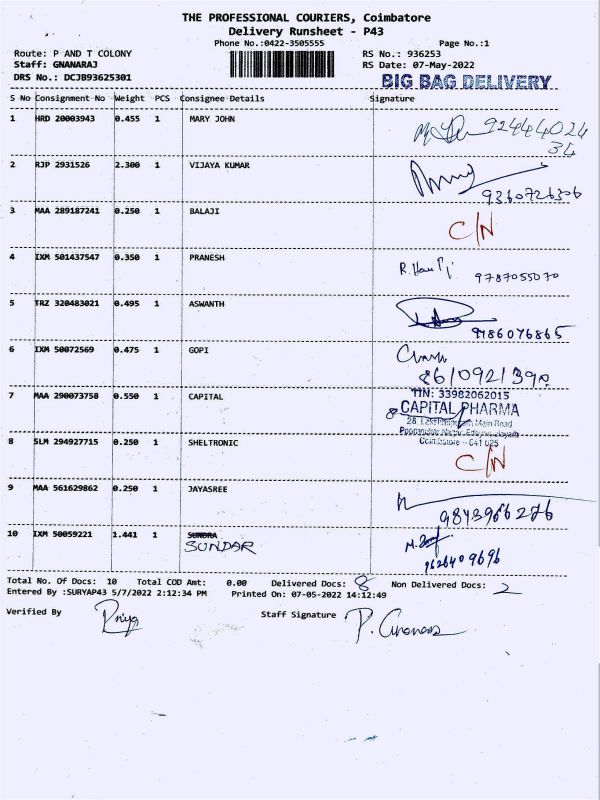 THE PROFESSIONAL COURIERS, Coimbatore
Delivery Runsheet - P43
Phone No.:0422-3505555 Page No.:1
Route: P AND T COLONY RS No.: 936253
Staff: GNANARAJ RS Date: 07-May-2022
DRS No.: DCJB93625301 BIG BAG DELIVERY
S No Consignment No Weight PCS Consignee Details Signature
1 HRD 20003943 0.455 1 MARY JOHN 92444024
34
2 RJP 2931526 2.300 1 VIJAYA KUMAR
9360726306
3 MAA 289187241 0.250 1 BALAJI C/N
4 IXM 501437547 0.350 1 PRANESH 9787055070
5 TRZ 320483021 0.495 1 ASWANTH
9186076865
6 IXM 50072569 0.475 1 GOPI
7 MAA 290073758 0.550 1 CAPITAL TIN: 33982062015
CAPITAL PHARMA
Main Road
8 SLM 294927715 0.250 1 SHELTRONIC Coimbatore - 641 025
C/N
9 MAA 561629862 0.250 1 JAYASREE
9843966276
10 IXM 50059221 1.441 1 SUNDRA
SUNDAR
9626409696
Total No. Of Docs: 10 Total COD Amt: 0.00 Delivered Docs: 8 Non Delivered Docs: 2
Entered By :SURYAP43 5/7/2022 2:12:34 PM Printed On: 07-05-2022 14:12:49
Verified By Priya Staff Signature